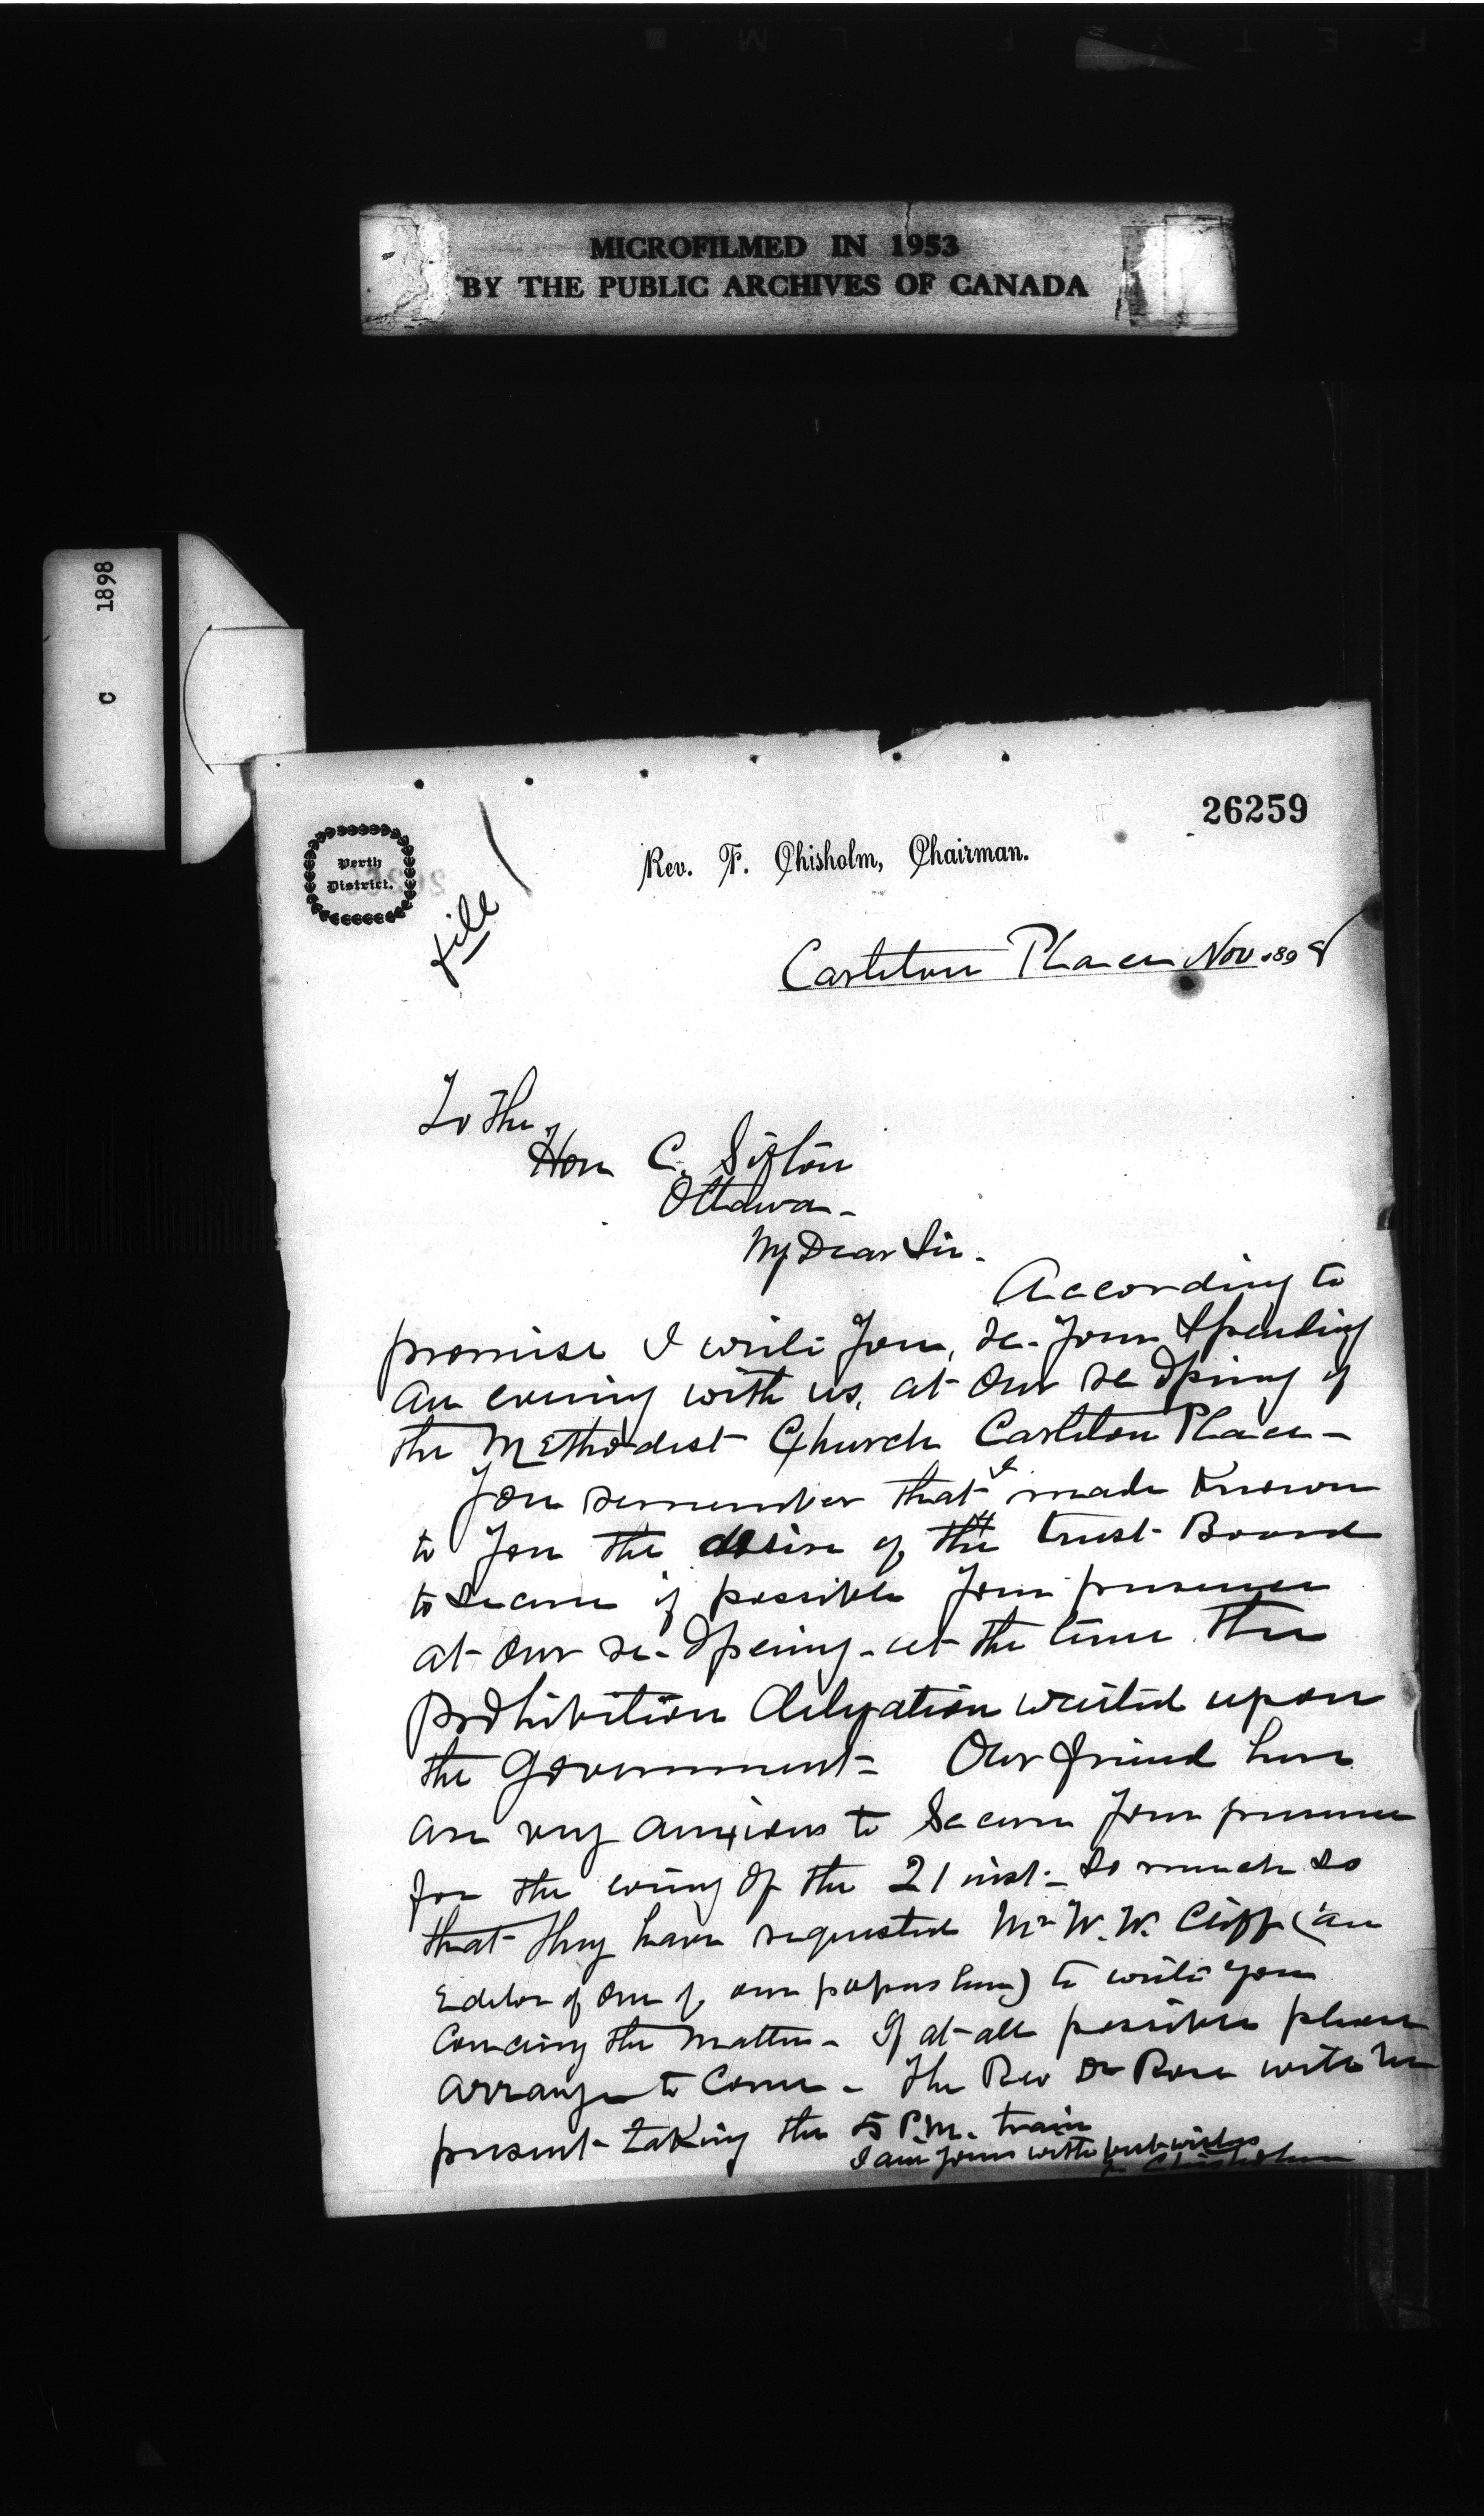 MICROFILMED IN 1953
BY THE PUBLIC ARCHIVES OF CANADA
C 1898
26259
Perth
District.
file
Rev. T. Chisholm, Chairman.
Carleton Place Nov 1898
To the
Hon C. Sifton
Ottawa-
My Dear Sir-
According to
promise I write you, re-your spending
an evening with us, at our re opening of
the Methodist Church Carleton Place-
You remember that I made known
to you the desire of the trust Board
to secure if possible your presence
at our re-opening-at the time the
Prohibition delegation waited upon
the Government- Our friend here
are very anxious to secure your presence
for the evening of the 21 inst- so much so
that they have requested Mr W. W. Cliff (an
Editor of one of our papers here) to write you
concering the matter- If at-all possible please
arrange to come- The Rev Dr Rose will be
present-taking the 5 P.M. train
I am yours with best wishes
Chisholm